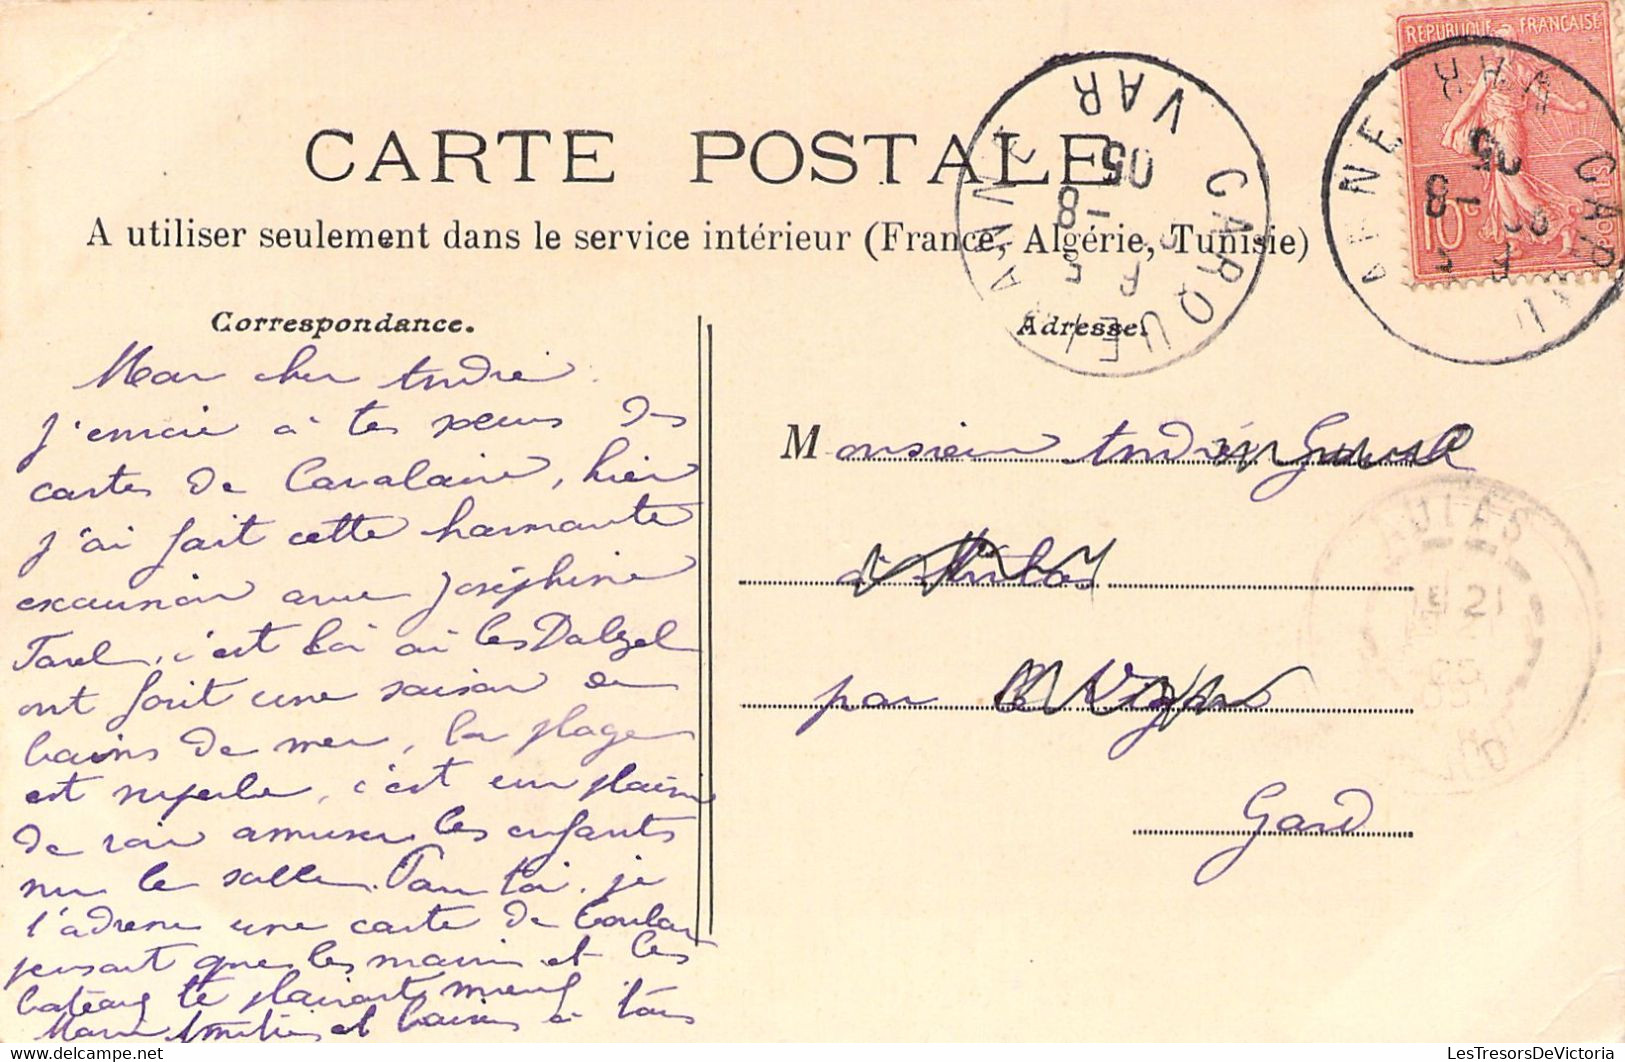 REPUBLIQUE FRANÇAISE
POSTES
10c
CARQUEIRANNE
VAR
8 -5
05
CARTE POSTALE
A utiliser seulement dans le service intérieur (France, Algérie, Tunisie)
Correspondance.
Mon cher André
J'envoie à tes sœurs des
cartes de Cavalaire, hier
j'ai fait cette charmante
excursion avec Joséphine
Tarel, c'est là où les Dalzel
ont fait une saison de
bains de mer, la plage
est superbe, c'est un plaisir
de voir amuser les enfants
sur le sable. Pour toi, je
t'adresse une carte de Toulon
pensant que les marins et les
bateaux te plairont mieux
Marie Amitiés et baisers à tous
Adresse.
Monsieur André
à Aulas
par le Vigan
Gard
AULAS
21
05
GARD
LesTresorsDeVictoria